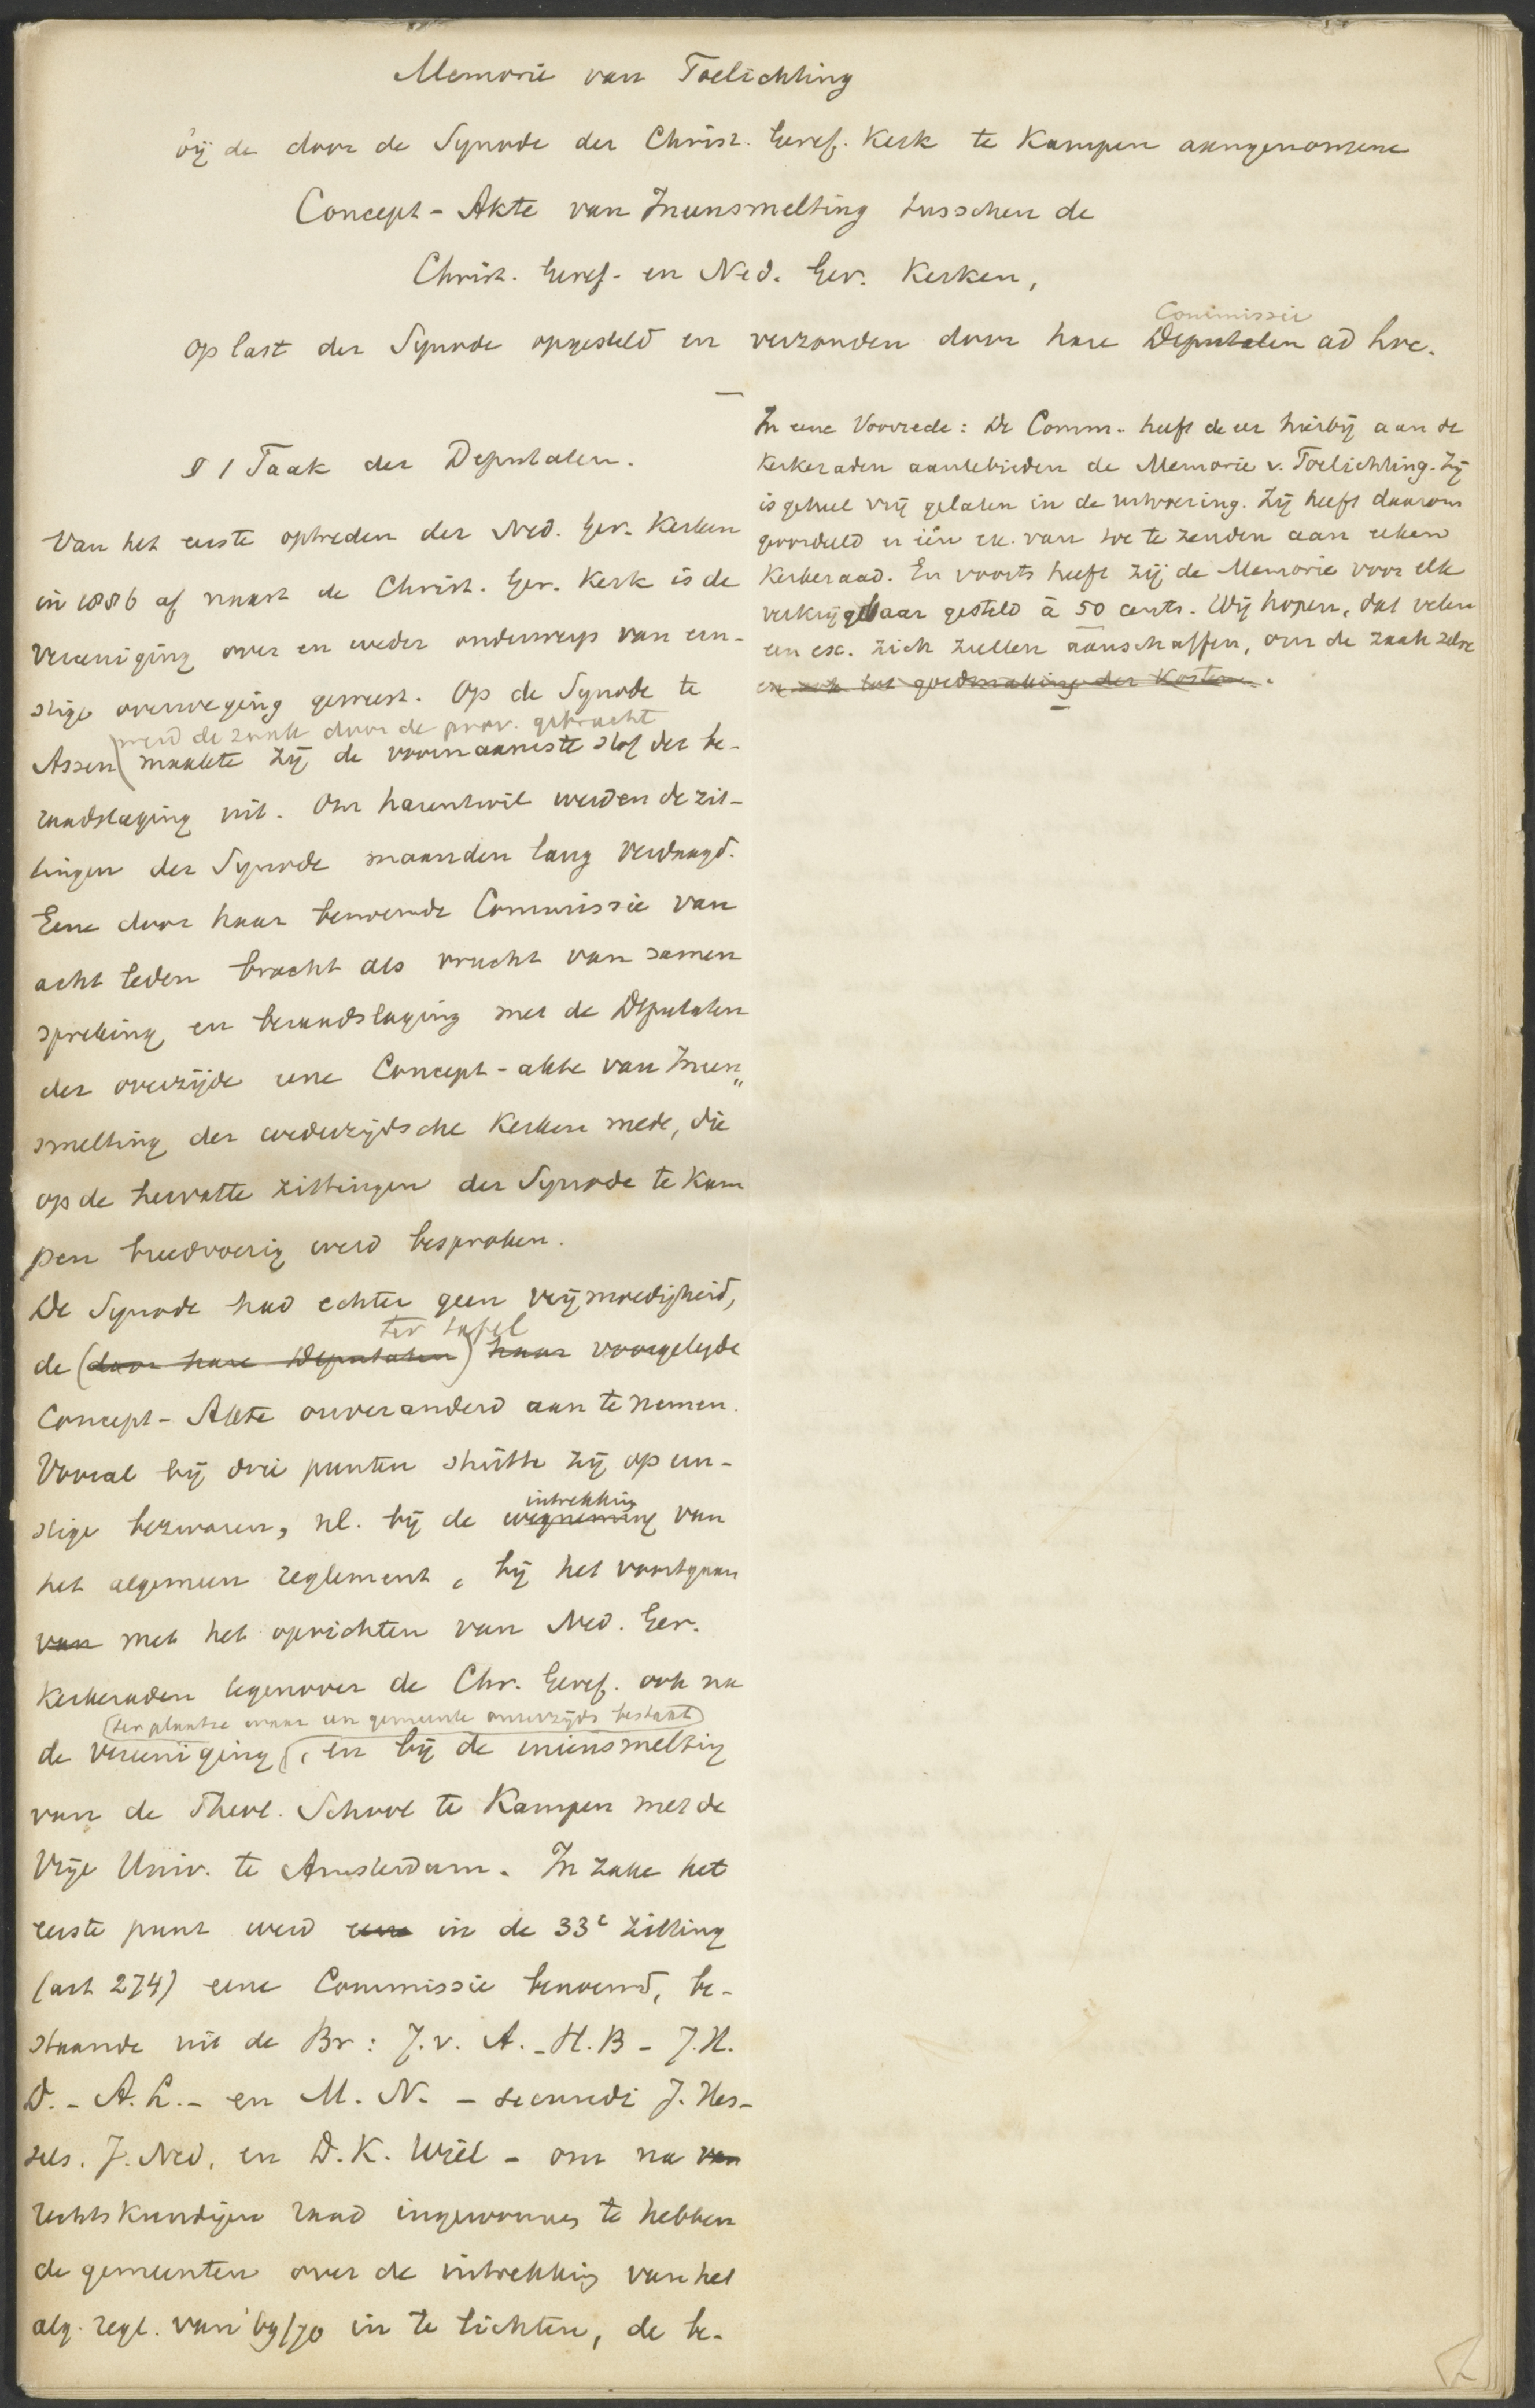 Memorie van Toelichting
bij de door de Synode der Christ. Geref. Kerk te Kampen aangenomene
Concept-Akte van Ineensmelting tusschen de
Christ. Geref. en Ned. Ger. Kerken,
Commissie
op last der Synode opgesteld en verzonden door hare Deputaten ad hoc.
§ 1 Taak der Deputaten.
Van het eerste optreden der Ned. Ger. Kerken
in 1886 af naast de Christ. Ger. Kerk is de
vereeniging over en weder onderwerp van ern-
stige overweging geweest. Op de Synode te
werd de zaak door de prov. gebracht
Assen maakte zij de voornaamste stof der be-
raadslaging uit. Om harentwil werden de zit-
tingen der Synode maanden lang verdaagd.
Eene door haar benoemde Commissie van
acht leden bracht als vrucht van samen
spreking en beraadslaging met de Deputaten
der overzijde eene Concept-akte van Ineen„
smelting der wederzijdsche Kerken mede, die
op de hervatte zittingen der Synode te Kam
pen breedvoerig werd besproken.
De Synode had echter geen vrijmoedigheid,
ter tafel
de (door hare Deputaten) haar voorgelegde
Concept-Akte onveranderd aan te nemen.
Vooral bij drie punten stuitte zij op ern-
intrekking
stige bezwaren, nl. bij de wegneming van
het algemeen reglement, bij het voortgaan
van met het oprichten van Ned. Ger.
Kerkeraden tegenover de Chr. Geref. ook na
(ter plaatse waar een gemeente onzerzijds bestaat)
de vereeniging, en bij de ineensmelting
van de Theol. School te Kampen met de
Vrije Univ. te Amsterdam. In zake het
eerste punt werd eene in de 33e zitting
(art 274) eene Commissie benoemd, be-
staande uit de Br: J. v. A. - H. B - J. H.
D. - A. L. - en M. N. - secundi J. Hes-
sels. J. Ned. en D. K. Wiel - om na van
rechtskundigen raad ingewonnen te hebben
de gemeenten over de intrekking van het
alg. regl. van '69/70 in te lichten, de be-
In eene Voorrede: De Comm. heeft de eer hierbij aan de
Kerkeraden aantebieden de Memorie v. Toelichting. Zij
is geheel vrij gelaten in de uitvoering. Zij heeft daarom
geoordeeld er één ex. van toe te zenden aan elken
Kerkeraad. En voorts heeft zij de Memorie voor elk
verkrijgbaar gesteld à 50 cents. Wij hopen, dat velen
een ex. zich zullen aanschaffen, om de zaak zelve
en ook tot goedmaking der Kosten.